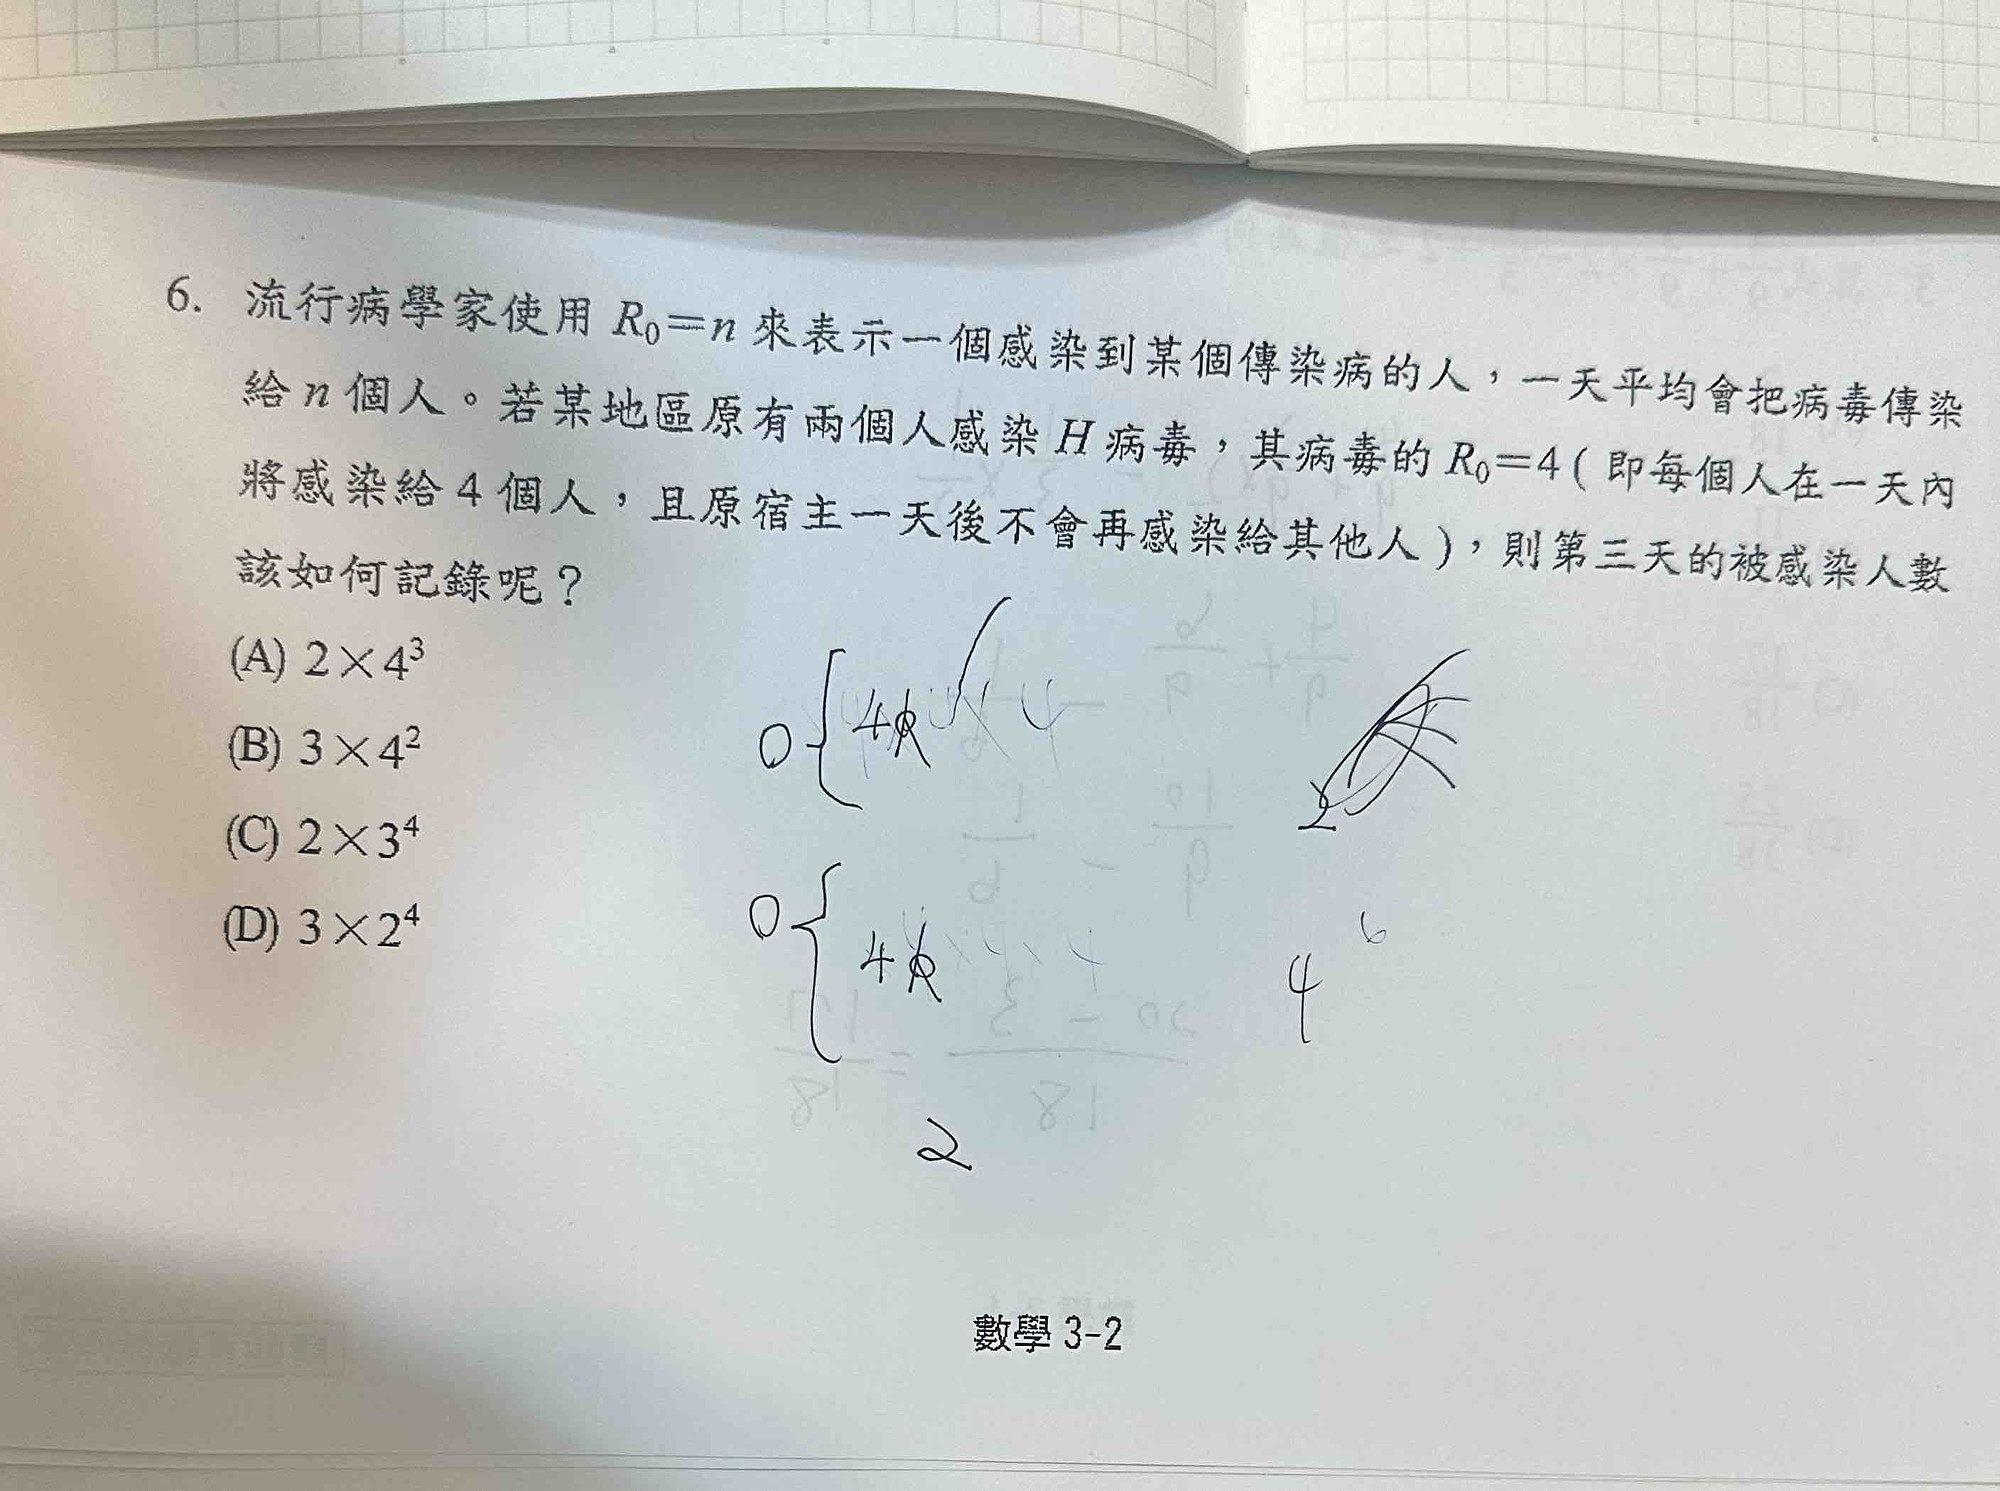 6. 流行病學家使用 R₀=n 來表示一個感染到某個傳染病的人，一天平均會把病毒傳染
給 n 個人。若某地區原有兩個人感染 H 病毒，其病毒的 R₀=4 ( 即每個人在一天內
將感染給 4 個人，且原宿主一天後不會再感染給其他人 )，則第三天的被感染人數
該如何記錄呢？
(A) 2×4³
(B) 3×4²
(C) 2×3⁴
(D) 3×2⁴
2
4 6
2
數學 3-2